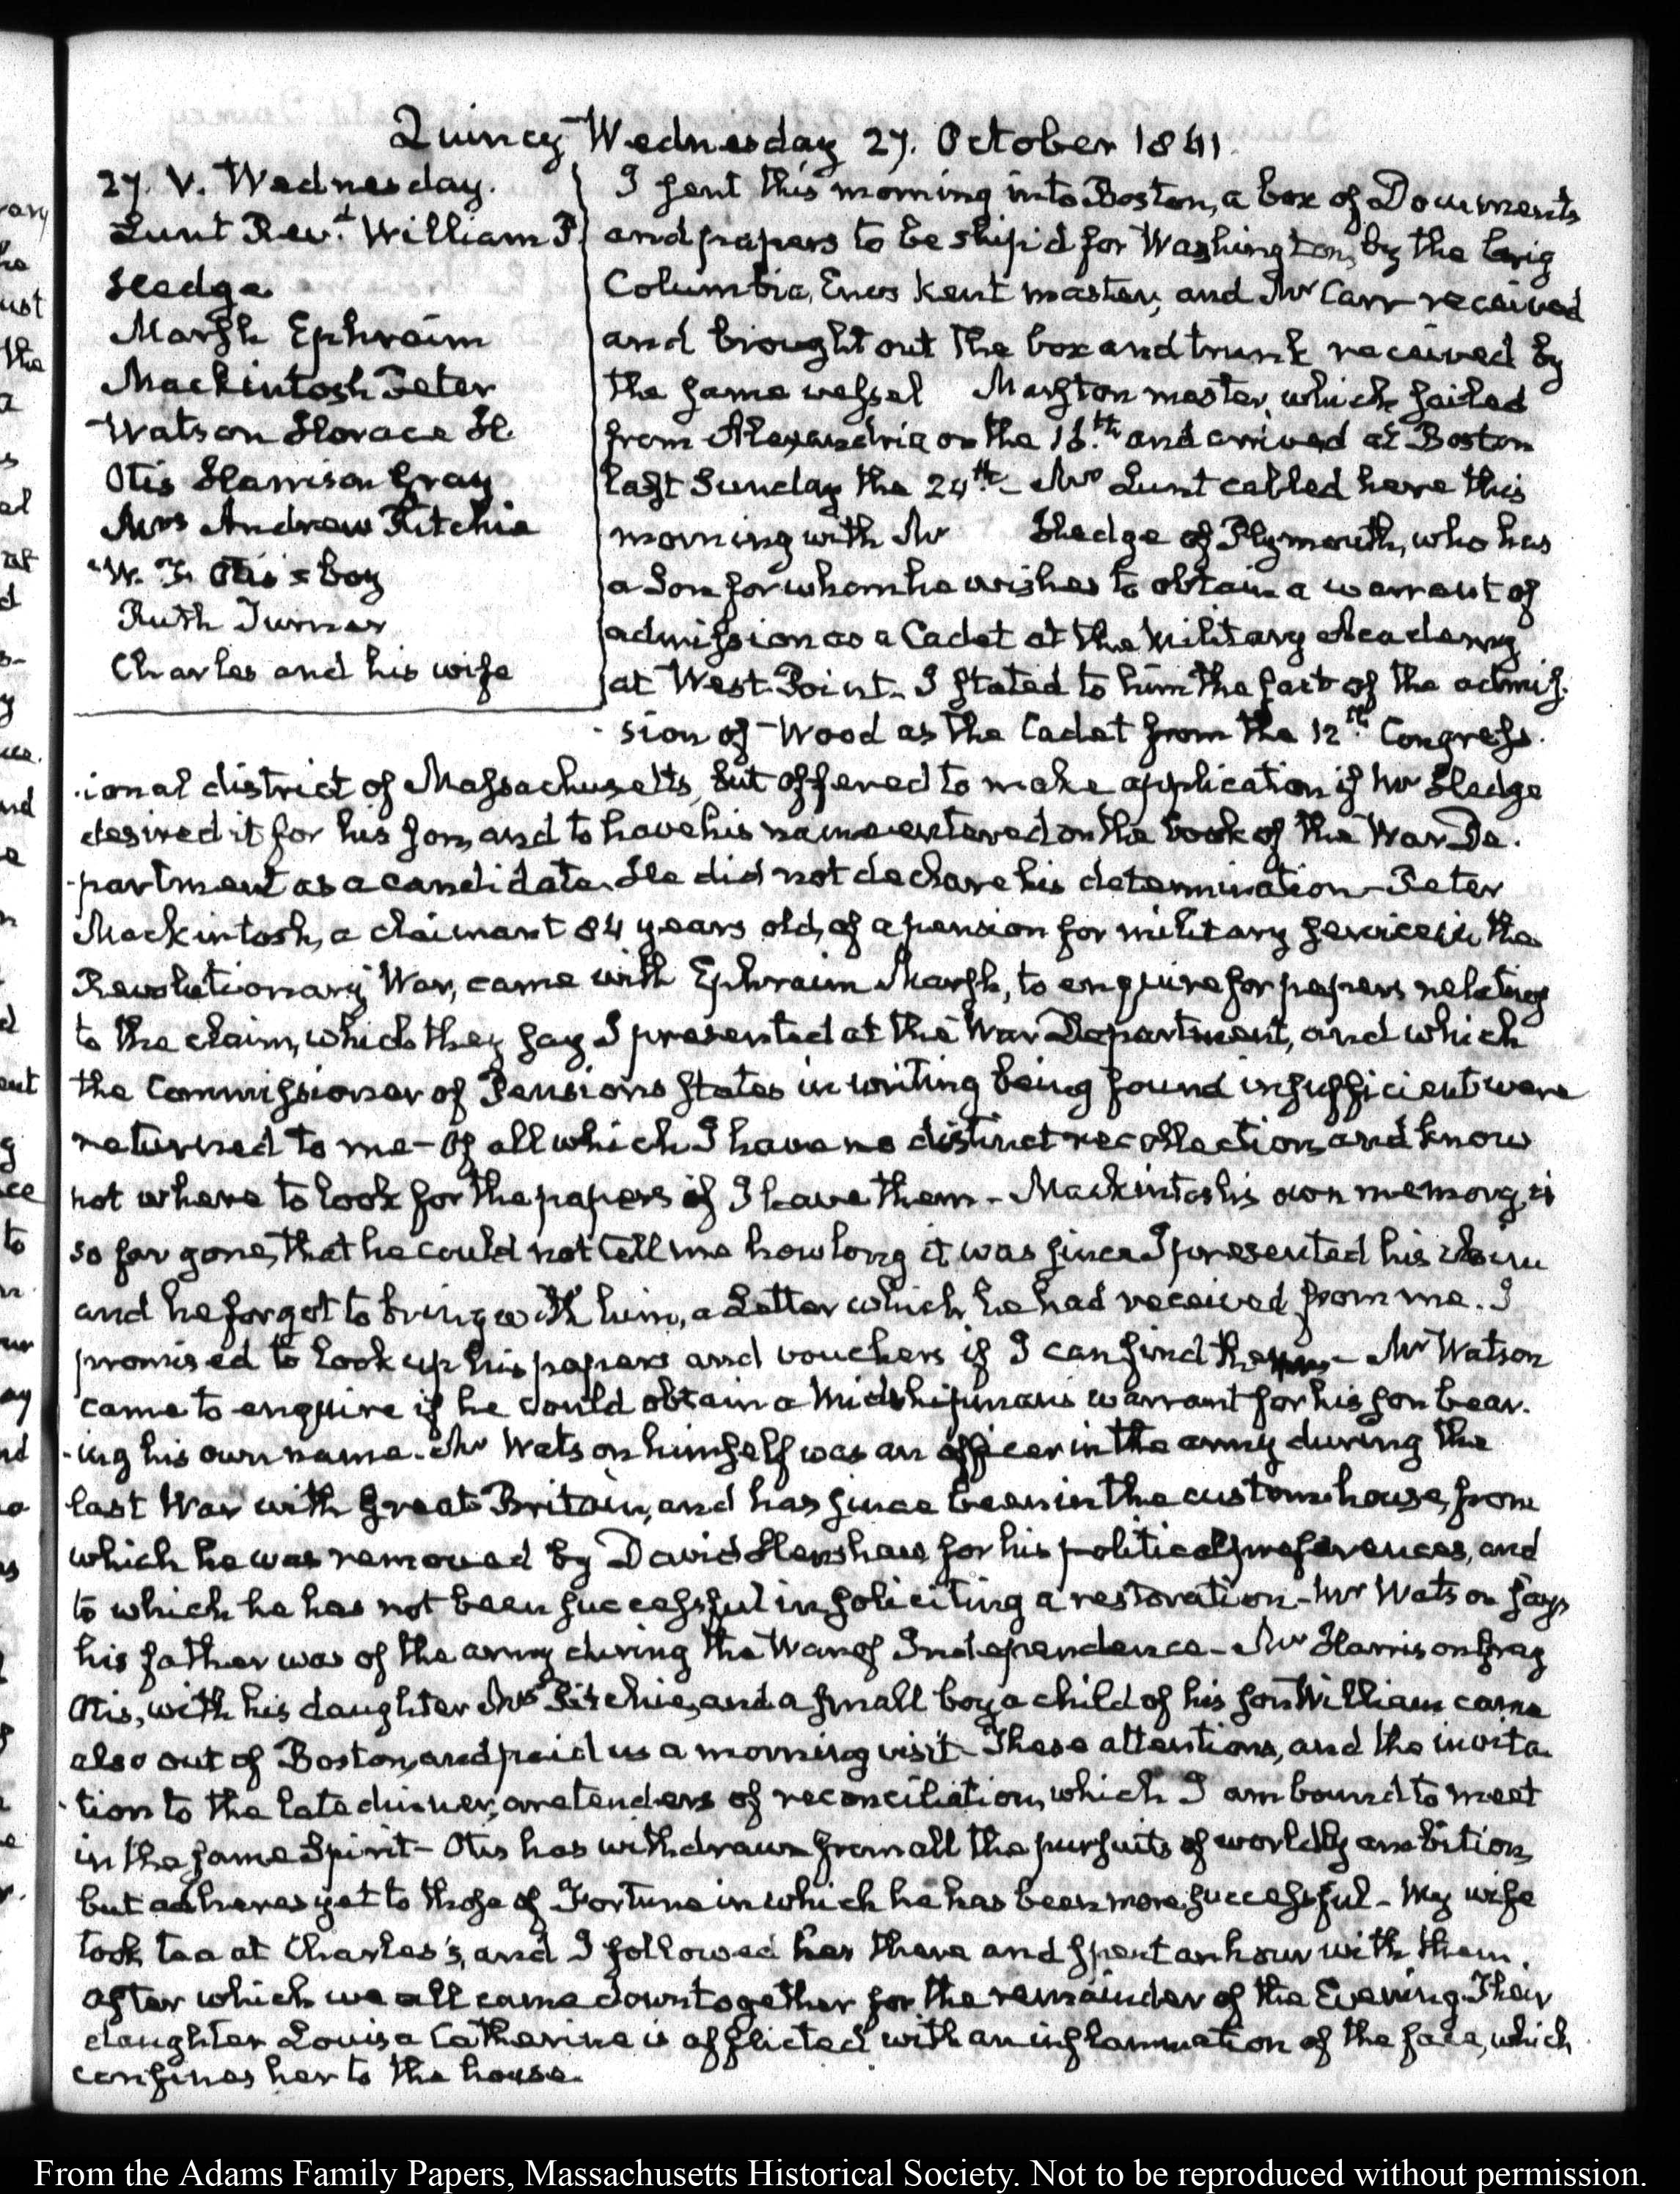 Quincy Wednesday 27. October 1841.
27. V. Wednesday.
Lunt Revd. William P
Hedge
Marsh Ephraim
Mackintosh Peter
Watson Horace H.
Otis Harrison Gray
Mrs Andrew Ritchie
W. F. Otis's boy
Ruth Turner
Charles and his wife
I sent this morning into Boston, a box of Documents
and papers to be ship'd for Washington, by the brig
Columbia, Enos Kent master, and Mr Carr received
and brought out the box and trunk received by
the same vessel Marston master, which sailed
from Alexandria on the 16th. and arrived at Boston
last Sunday the 24th. - Mr Lunt called here this
morning with Mr Hedge of Plymouth, who has
a Son for whom he wishes to obtain a warrant of
admission as a Cadet at the Military Academy
at West-Point - I stated to him the fact of the admis-
sion of Wood as the Cadet from the 12th. Congress-
ional district of Massachusetts, but offered to make application if Mr Hedge
desired it for his son, and to have his name entered on the book of the War De-
partment as a candidate. He did not declare his determination - Peter
Mackintosh, a claimant 84 years old, of a pension for military service in the
Revolutionary War, came with Ephraim Marsh, to enquire for papers relating
to the claim, which they say I presented at the War Department, and which
the Commissioner of Pensions states in writing being found insufficient were
returned to me - Of all which I have no distinct recollection, and know
not where to look for the papers if I have them - Mackintosh's own memory is
so far gone, that he could not tell me how long it was since I presented his claim
and he forgot to bring with him, a Letter which he had received from me. I
promised to look up his papers and vouchers if I can find them - Mr Watson
came to enquire if he could obtain a Midshipman's warrant for his son bear-
ing his own name. Mr Watson himself was an officer in the army during the
last War with Great Britain, and has since been in the custom house, from
which he was removed by David Henshaw for his political preferences, and
to which he has not been successful in soliciting a restoration - Mr Watson says
his father was of the army during the War of Independence - Mr Harrison Gray
Otis, with his daughter Mrs Ritchie, and a small boy, a child of his son William came
also out of Boston, and paid us a morning visit - These attentions, and the invita-
tion to the late dinner, are tenders of reconciliation, which I am bound to meet
in the same Spirit - Otis has withdrawn from all the pursuits of worldly ambition,
but adheres yet to those of Fortune in which he has been more successful - My wife
took tea at Charles's, and I followed her there and spent an hour with them.
after which we all came down together for the remainder of the Evening. Their
daughter Louisa Catherine is afflicted with an inflammation of the face, which
confines her to the house.
From the Adams Family Papers, Massachusetts Historical Society. Not to be reproduced without permission.